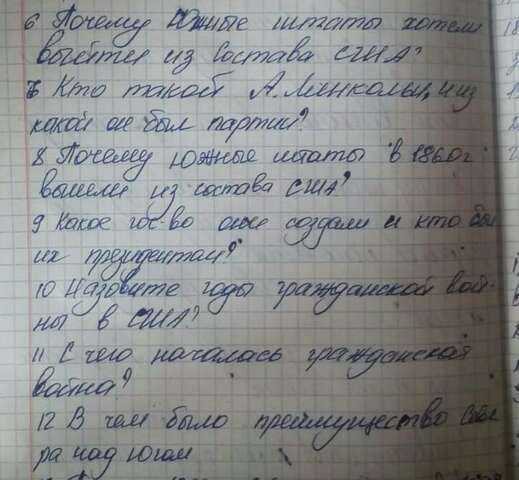 6 Почему Южные штаты хотели
выйти из состава США?
7 Кто такой А. Линкольн, и из
какой он был партии?
8 Почему южные штаты в 1860г
вышли из состава США?
9 Какое гос-во они создали и кто был
их президентом?
10 Назовите годы гражданской вой-
ны в США?
11 С чего началась гражданская
война?
12 В чем было преимущество Севе
ра над югом